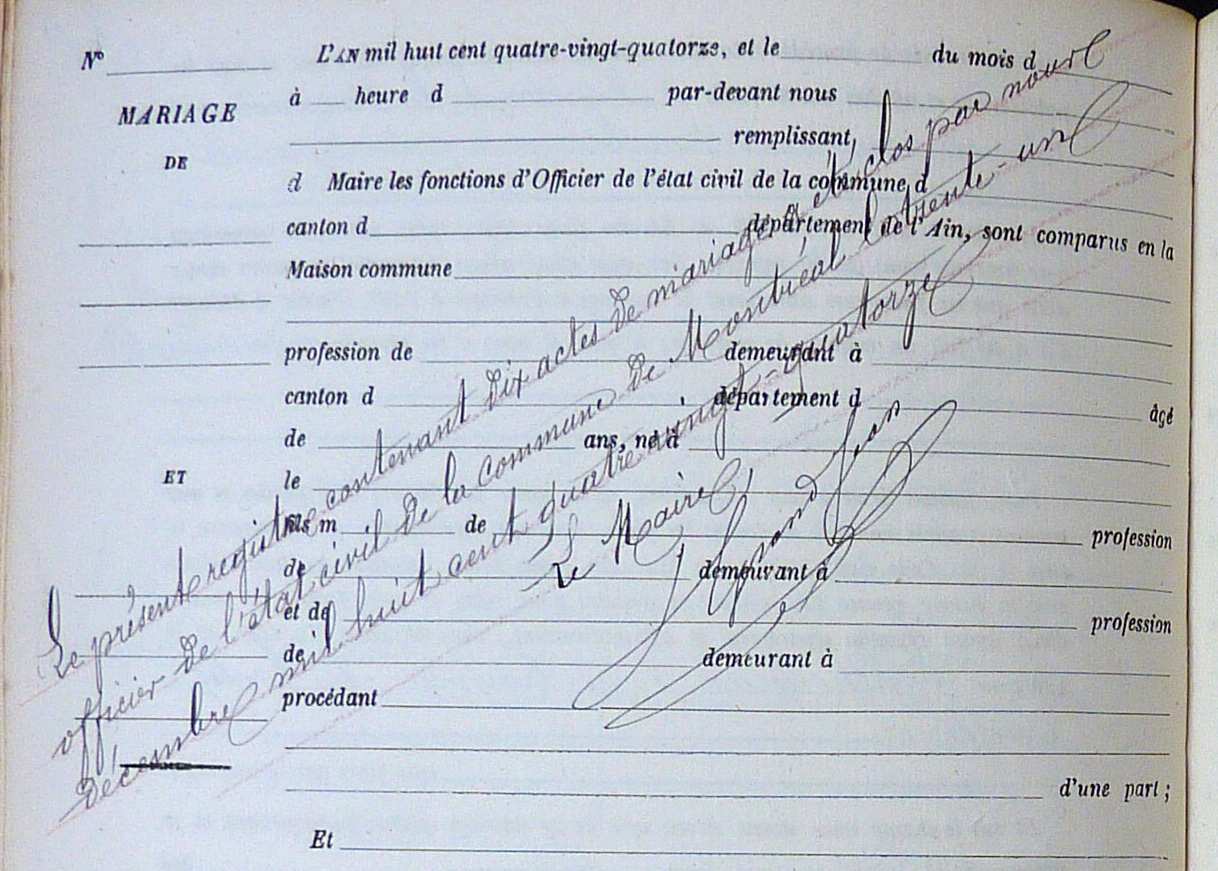 Nº L'AN mil huit cent quatre-vingt-quatorze, et le du mois d
à heure d par-devant nous
MARIAGE
remplissant,
DE
d Maire les fonctions d'Officier de l'état civil de la commune d
canton d département de l'Ain, sont comparus en la
Maison commune
profession de demeurant à
canton d département d âgé
de ans, né à
ET
le
fils m de profession
de demeurant à
et de profession
de demeurant à
procédant
d'une part;
Et
Le présent registre contenant dix actes de mariage a été clos par nous
officier de l'état civil de la commune de Montréal le trente-un
décembre mil huit cent quatre vingt-quatorze
Le Maire